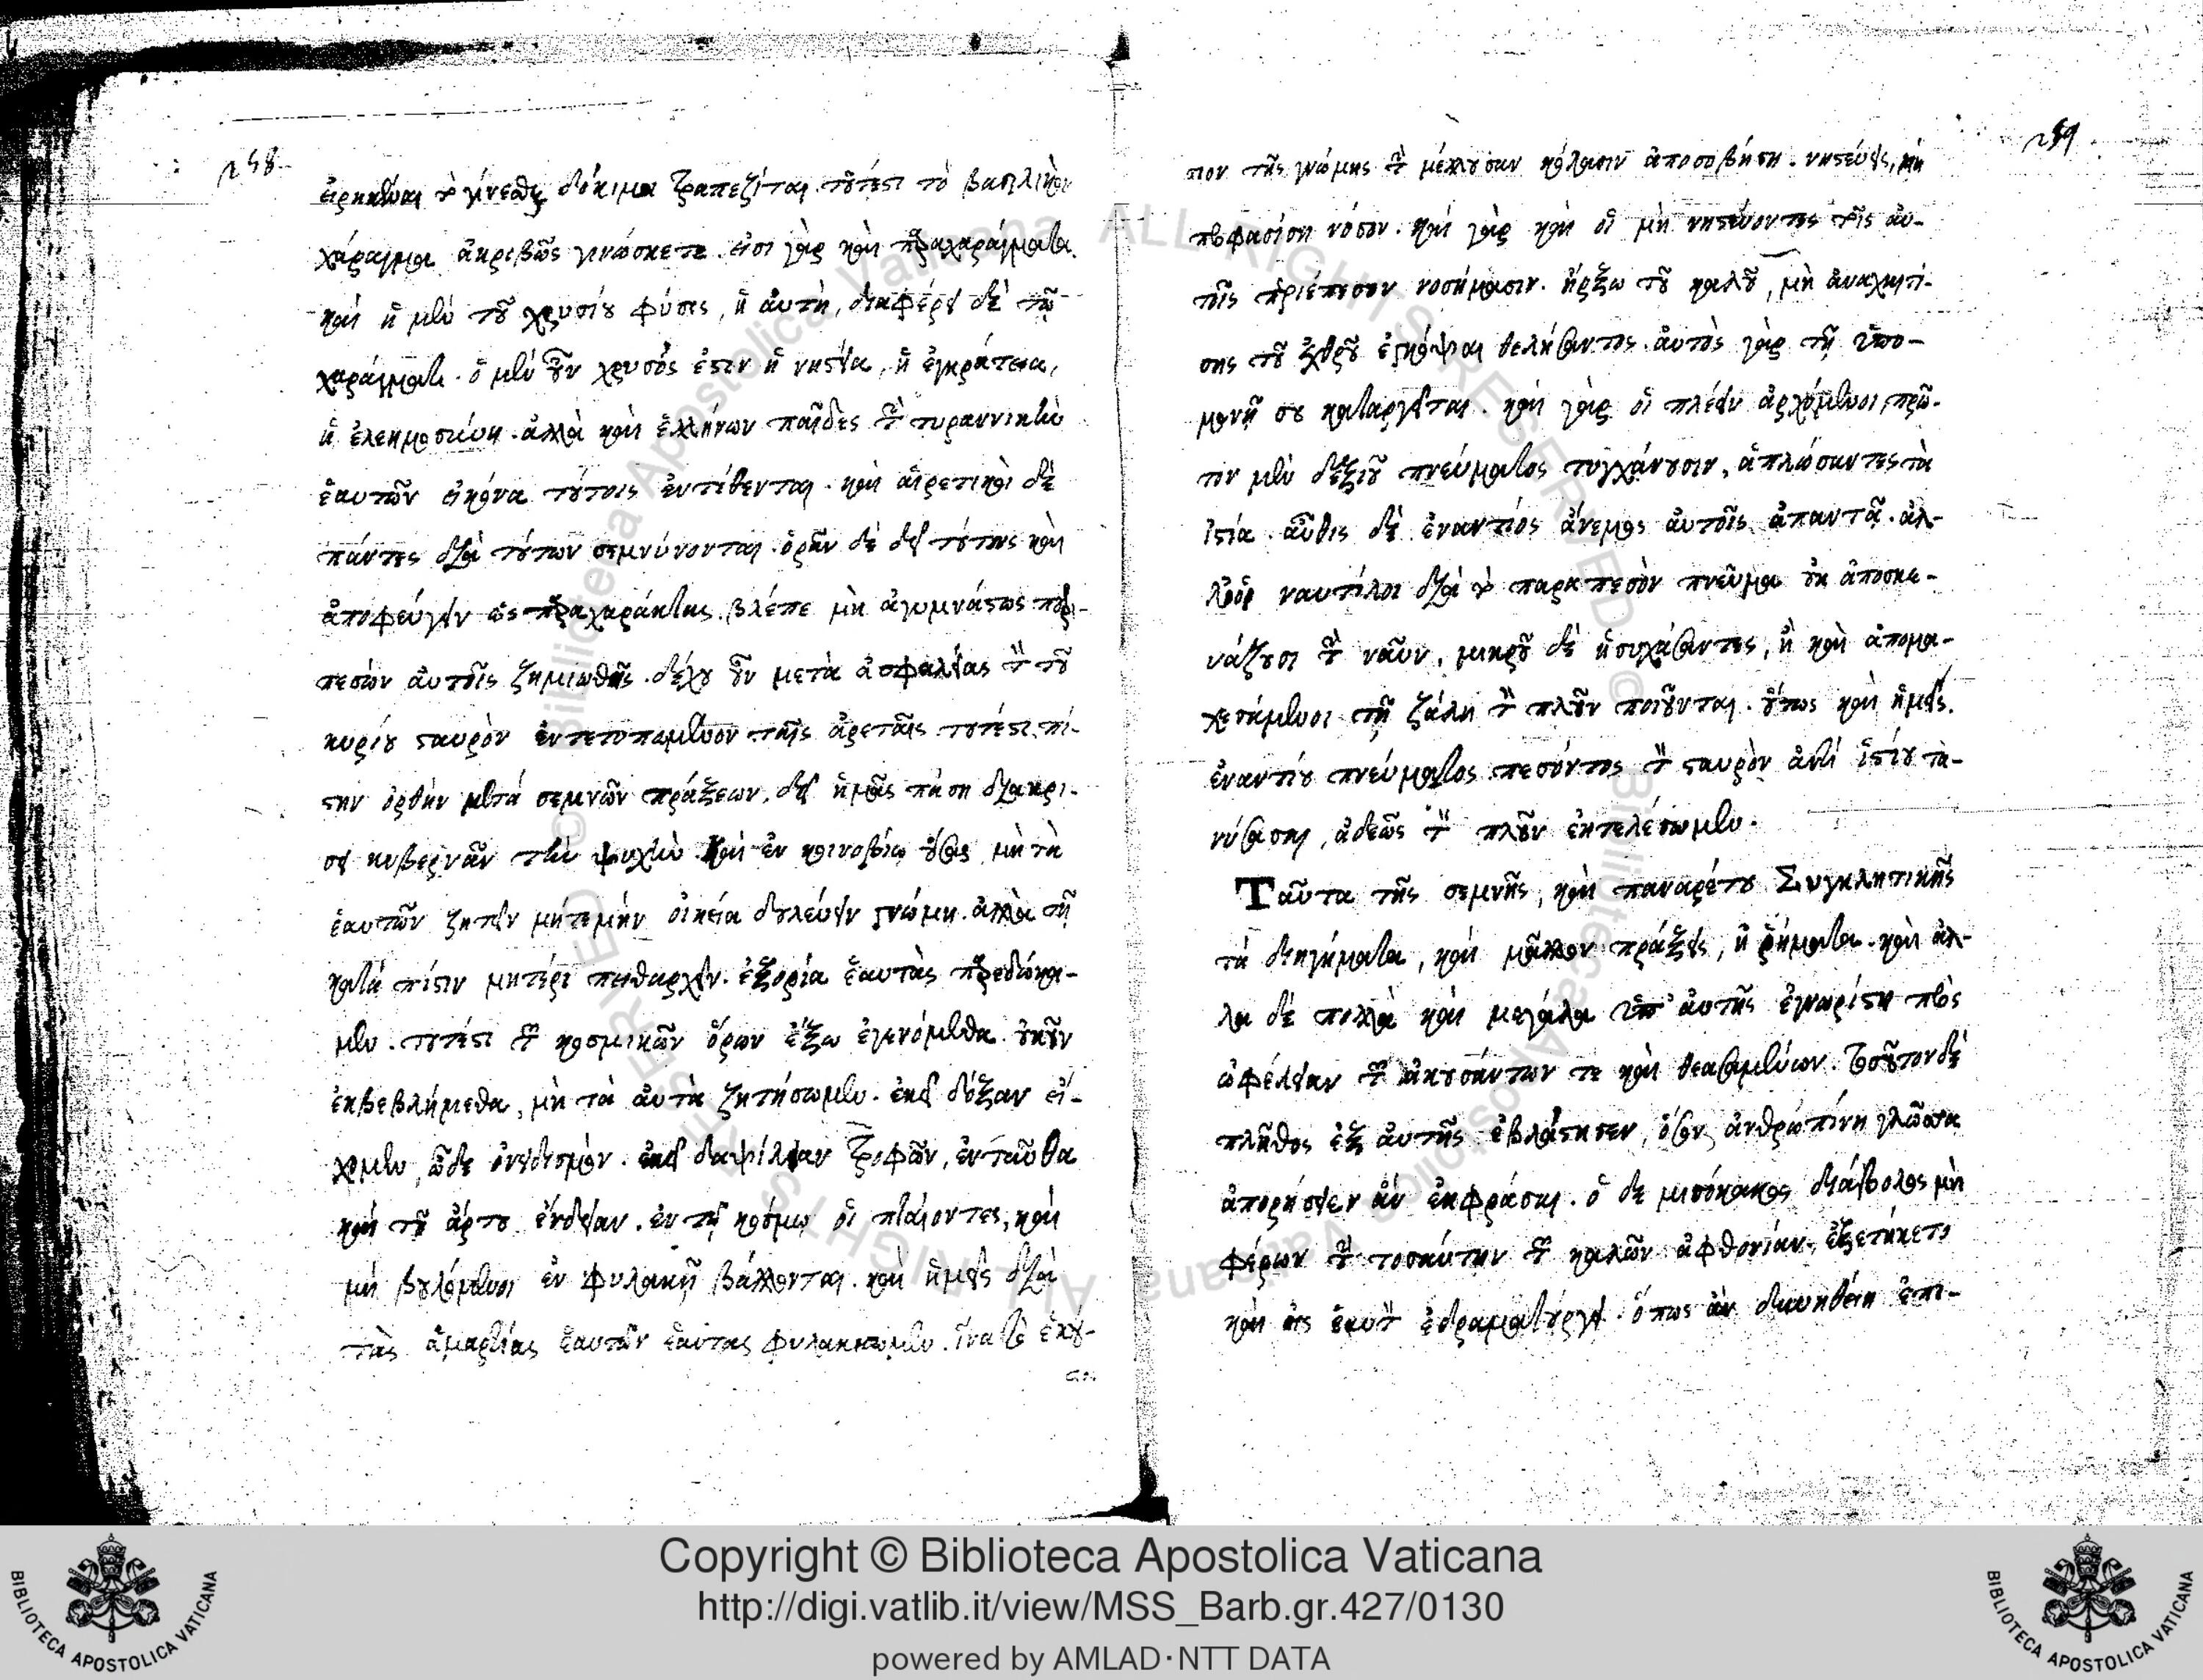 258
εἰρηκέναι τὸ γίνεσθε δόκιμοι τραπεζῖται τουτέστι τὸ βασιλικὸν
χάραγμα ἀκριβῶς γινώσκετε. εἰσὶ γὰρ καὶ παραχαράγματα.
καὶ ἡ μὲν τοῦ χρυσίου φύσις, ἡ αὐτή, διαφέρει δὲ τῷ
χαράγματι. ὁ μὲν οὖν χρυσός ἐστιν ἡ νηστεία, ἡ ἐγκράτεια,
ἡ ἐλεημοσύνη. ἀλλὰ καὶ ἑλλήνων παῖδες τὴν τυραννικὴν
ἑαυτῶν εἰκόνα τούτοις ἐντίθενται. καὶ αἱρετικοὶ δὲ
πάντες διὰ τούτων σεμνύνονται. ὁρᾶν δὲ δεῖ τούτους καὶ
ἀποφεύγειν ὡς παραχαράκτας. βλέπε μὴ ἀγυμνάστως περι-
πεσὼν αὐτοῖς ζημιωθῇς. δέχου οὖν μετὰ ἀσφαλείας τὸν τοῦ
κυρίου σταυρὸν ἐντετυπωμένον ταῖς ἀρεταῖς τουτέστι πί-
στιν ὀρθὴν μετὰ σεμνῶν πράξεων. δεῖ ἡμᾶς πάσῃ διακρί-
σει κυβερνᾶν τὴν ψυχὴν. καὶ ἐν κοινοβίῳ οὔσας μὴ τὰ
ἑαυτῶν ζητεῖν μήτε μὴν οἰκεία δουλεύειν γνώμῃ. ἀλλὰ τῇ
κατὰ πίστιν μητέρι πειθαρχεῖν. ἐξορία ἑαυτὰς παρεδώκα-
μεν. τουτέστι τῶν κοσμικῶν ὅρων ἔξω ἐγενόμεθα. οὐκοῦν
ἐκβεβλήμεθα, μὴ τὰ αὐτὰ ζητήσωμεν. ἐκεῖ δόξαν εἴ-
χομεν, ὧδε ὀνειδισμόν. ἐκεῖ δαψίλειαν τροφῶν, ἐνταῦθα
καὶ τοῦ ἄρτου ἔνδειαν. ἐν τῷ κόσμῳ οἱ πταίοντες, καὶ
μὴ βουλόμενοι ἐν φυλακῇ βάλλονται. καὶ ἡμεῖς διὰ
τὰς ἁμαρτίας ἑαυτῶν ἑαυτὰς φυλακίσωμεν. ἵνα τὸ ἑκού-
σιον
259
σιον τῆς γνώμης τὴν μέλλουσαν κόλασιν ἀποσοβήσῃ. νηστεύεις, μὴ
προφασίσῃ νόσον. καὶ γὰρ καὶ οἱ μὴ νηστεύοντες τοῖς αὐ-
τοῖς περιέπεσον νοσήμασιν. ἤρξω τοῦ καλοῦ, μὴ ἀναχαιτί-
σῃς τοῦ ἐχθροῦ ἐγκόψαι θελήσαντος. αὐτὸς γὰρ τῇ ὑπο-
μονῇ σου καταργεῖται. καὶ γὰρ οἱ πλέειν ἀρχόμενοι, πρῶ-
τον μὲν δεξιοῦ πνεύματος τυγχάνουσιν, ἁπλώσαντες τὰ
ἱστία. αὖθις δὲ ἐναντίος ἄνεμος αὐτοῖς ἀπαντᾷ. ἀλ-
λ' οἱ ναυτίλοι διὰ τὸ παραπεσὸν πνεῦμα οὐκ ἀποσκε-
νάζουσι τὴν ναῦν, μικρὸν δὲ ἡσυχάσαντες, ἢ καὶ ἀπομα-
χεσάμενοι τῇ ζάλῃ τὸν πλοῦν ποιοῦνται. οὕτως καὶ ἡμεῖς.
ἐναντίου πνεύματος πεσόντος τὸν σταυρὸν ἀντὶ ἱστίου τα-
νύσασαι, ἀδεῶς τὸν πλοῦν ἐκτελέσωμεν.
Ταῦτα τῆς σεμνῆς, καὶ παναρέτου Συγκλητικῆς
τὰ διηγήματα, καὶ μᾶλλον πράξεις, ἢ ῥήματα. καὶ ἄλ-
λα δὲ πολλὰ καὶ μεγάλα ὑπ' αὐτῆς ἐγνωρίσθη πρὸς
ὠφέλειαν τῶν ἀκουσάντων τε καὶ θεασαμένων. τοσοῦτον δὲ
πλῆθος ἐξ αὐτῆς ἐβλάστησεν, ὅσον ἀνθρωπίνη γλῶσσα
ἀπορήσειεν ἂν ἐκφράσαι. ὁ δὲ μισόκαλος διάβολος μὴ
φέρων τὴν τοσαύτην τῶν καλῶν ἀφθονίαν, ἐξετήκετο
καὶ εἰς ἑαυτὸν ἐδραματούργει. ὅπως ἂν δυνηθείη ἐπι-
Copyright © Biblioteca Apostolica Vaticana
http://digi.vatlib.it/view/MSS_Barb.gr.427/0130
powered by AMLAD·NTT DATA
BIBLIOTECA APOSTOLICA VATICANA
BIBLIOTECA APOSTOLICA VATICANA